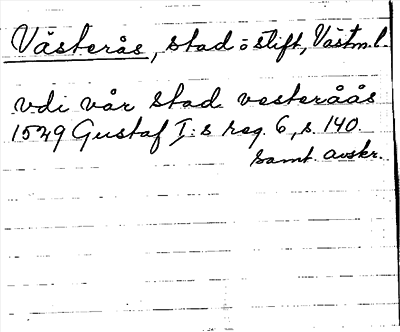 Västerås, stad o stift, Västm.l.
vdi vår stad vesteråås
1529 Gustaf I:s reg. 6, s. 140.
samt. avskr.